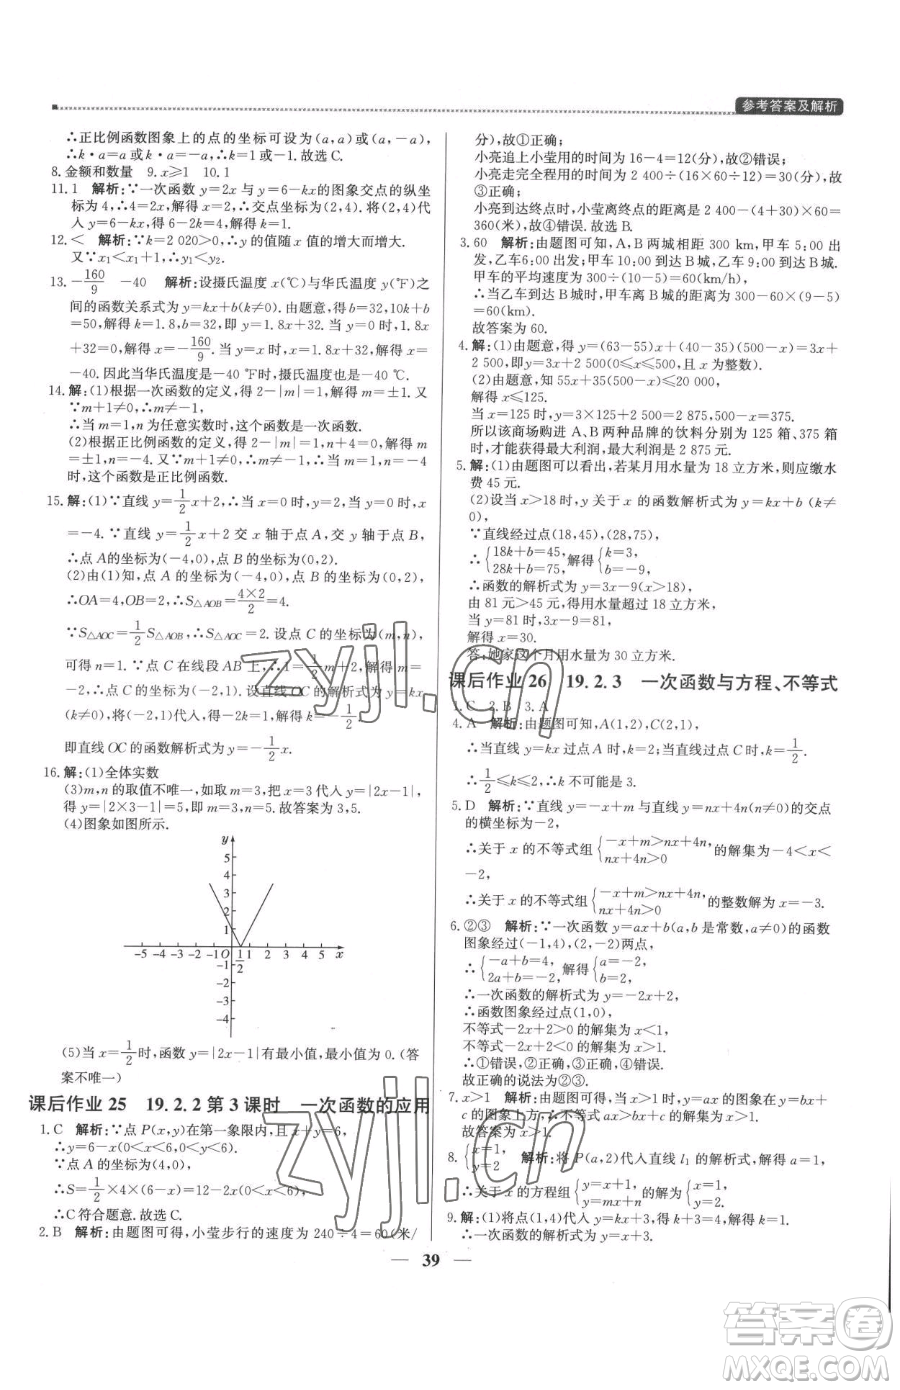 参考答案及解析
∴正比例函数图象上的点的坐标可设为(a,a)或(a,-a).
∴k·a=a或k·a=-a,∴k=1或-1.故选C.
8.金额和数量 9.x≥1 10.1
11.1 解析:∵一次函数y=2x与y=6-kx的图象交点的纵坐
标为4,∴4=2x,解得x=2,∴交点坐标为(2,4).将(2,4)代
入y=6-kx,得6-2k=4,解得k=1.
12.< 解析:∵k=2 020>0,∴y的值随x值的增大而增大.
又∵x₁<x₂,∴y₁<y₂.
13.-160/9 -40 解析:设摄氏温度x(℃)与华氏温度y(℉)之
间的函数关系式为y=kx+b(k≠0).由题意,得b=32,10k+b
=50,解得k=1.8,b=32,即y=1.8x+32.当y=0时,1.8x
+32=0,解得x=-160/9.当y=x时,x=1.8x+32,解得x=
-40.因此当华氏温度是-40 ℉时,摄氏温度是-40 ℃.
14.解:(1)根据一次函数的定义,得2-|m|=1,解得m=±1.又
∵m+1≠0,∴m≠-1,∴m=1.
∴当m=1,n为任意实数时,这个函数是一次函数.
(2)根据正比例函数的定义,得2-|m|=1,n+4=0,解得m
=±1,n=-4.又∵m+1≠0,∴m≠-1,∴当m=1,n=-4
时,这个函数是正比例函数.
15.解:(1)∵直线y=1/2x+2,∴当x=0时,y=2,当y=0时,x
=-4.∵直线y=1/2x+2交x轴于点A,交y轴于点B,
∴点A的坐标为(-4,0),点B的坐标为(0,2).
(2)由(1)知,点A的坐标为(-4,0),点B的坐标为(0,2),
∴OA=4,OB=2,∴S△AOB=4×2/2=4.
∵S△AOC=1/2S△AOB,∴S△AOC=2.设点C的坐标为(m,n),
可得n=1.∵点C在线段AB上,∴1=1/2m+2,∴m=-2,
∴点C的坐标为(-2,1).设直线OC的函数解析式为y=
kx,将(-2,1)代入,得1=-2k,解得k=-1/2,
即直线OC的函数解析式为y=-1/2x.
16.解:(1)全体实数
(3)m,n的取值不唯一,如取m=3,把x=3代入y=|2x-1|,
得y=|2×3-1|=5,即m=3,n=5.故答案为3,5.
(4)图象如图所示.
y
5
4
3
2
1
-5 -4 -3 -2 -1 O 1/2 1 2 3 4 5 x
-1
-2
-3
-4
(5)当x=1/2时,函数y=|2x-1|有最小值,最小值为0.(答
案不唯一)
课后作业25 19.2.2第3课时 一次函数的应用
1.C 解析:∵点P(x,y)在第一象限内,且x+y=6,
∴y=6-x(0<x<6,0<y<6).
∵点A的坐标为(4,0),
∴S=1/2×4×(6-x)=12-2x(0<x<6),
∴C符合题意.故选C.
2.B 解析:由题图可得,小莹步行的速度为240÷4=60(米/
分),故①正确;
小亮追上小莹用的时间为16-4=12(分),故②错误;
小亮走完全程用的时间为2 400÷(16×60÷12)=30(分),
故③正确;
小亮到达终点时,小莹离终点的距离是2 400-(4+30)×60=
360(米),故④错误.故选B.
3.60 解析:由题图可知,A,B两城相距300 km,甲车5:00出
发,乙车6:00出发;甲车10:00到达B城,乙车9:00到达B城.
甲车的平均速度为300÷(10-5)=60(km/h),
∴当乙车到达B城时,甲车离B城的距离为60×(10-9)=
60(km).
故答案为60.
4.解:(1)由题意,得y=(63-55)x+(40-35)(500-x)=3x+
2 500,即y=3x+2 500(0≤x≤500,且x为整数).
(2)由题意,知55x+35(500-x)≤20 000,
解得x≤125.
当x=125时,y=3×125+2 500=2 875,500-x=375.
所以该商场购进A、B两种品牌的饮料分别为125箱、375箱
时,才能获得最大利润,最大利润是2 875元.
5.解:(1)由题图可以看出,若某月用水量为18立方米,则应缴水
费45元.
(2)设当x>18时,y关于x的函数解析式为y=kx+b(k≠
0),
∵直线经过点(18,45),(28,75),
∴{18k+b=45,28k+b=75,解得{k=3,b=-9,
∴函数的解析式为y=3x-9(x>18),
由81元>45元,得用水量超过18立方米,
∴当y=81时,3x-9=81,
解得x=30.
答:她家这个月用水量为30立方米.
课后作业26 19.2.3 一次函数与方程、不等式
1.C 2.B 3.A
4.A 解析:由题图可知,A(1,2),C(2,1),
∴当直线y=kx过点A时,k=2;当直线y=kx过点C时,k=1/2,
∴1/2≤k≤2,∴k的值不可能是3.
5.D 解析:∵直线y=-x+m与直线y=nx+4n(n≠0)的交点
的横坐标为-2,
∴关于x的不等式组{-x+m>nx+4n,nx+4n>0的解集为-4<x
<-2,
∴关于x的不等式组{-x+m>nx+4n,nx+4n>0的整数解为x=-3.
6.②③ 解析:∵一次函数y=ax+b(a,b是常数,a≠0)的函数
图象经过(-1,4),(2,-2)两点,
∴{-a+b=4,2a+b=-2,解得{a=-2,b=2,
∴一次函数的解析式为y=-2x+2,
∴函数图象经过点(1,0),
不等式-2x+2>0的解集为x<1,
不等式-2x+2<0的解集为x>1.
∴①错误,②正确,③正确,④错误.
故正确的说法为②③.
7.x>1 解析:由函数图象可知,当x>1时,y=ax的图象在y=bx+
c的图象上方,∴关于x的不等式ax>bx+c的解集为x>1.
故答案为x>1.
8.{x=1,y=2 解析:将P(a,2)代入直线l₁的解析式,解得a=1,
∴关于x的方程组{y=x+1,y=mx+n的解为{x=1,y=2.
9.解:(1)将点(1,4)代入y=kx+3,得k+3=4,解得k=1,
∴一次函数的解析式为y=x+3.
39
zyjl.cn
zyjl.cn
答案圈
MXQE.COM